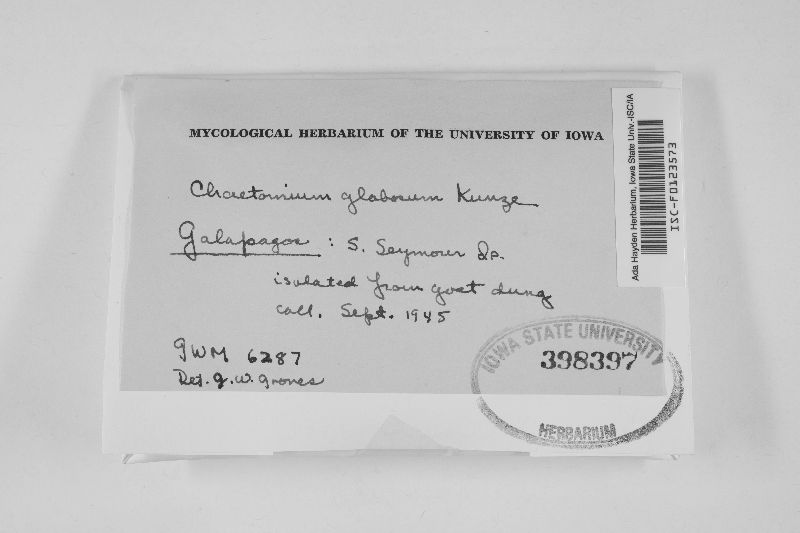 MYCOLOGICAL HERBARIUM OF THE UNIVERSITY OF IOWA
Chaetomium globosum Kunze
Galapagos : S. Seymour
isolated from goat dung
coll. Sept. 1945
GWM 6287
Det. J. W. Groves
IOWA STATE UNIVERSITY
398397
HERBARIUM
Ada Hayden Herbarium, Iowa State Univ.-ISC/IA
ISC-F0123573